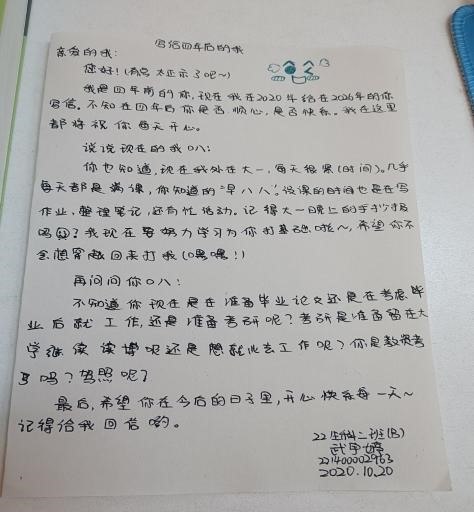 写给四年后的我
亲爱的我:
您好!(有点太正示了吧~)
我是四年前的你,现在我在2020年给在2026年的你
写信。不知在四年后你是否顺心,是否快乐。我在这里
都将祝你每天开心。
说说现在的我0八:
你也知道,现在我处在大一,每天很累(时间)。几乎
每天都是满课,你知道的"早八人"。没课的时间也是在写
作业,整理笔记,还有忙活动。记得大一晚上的手抄报
吗?我现在要努力学习为你打基础啦~,希望你不
会想穿越回来打我(嘿嘿!)
再问问你0八:
不知道你现在是在准备毕业论文还是在考虑毕
业后就工作,还是准备考研呢?考研是准备留在大
学继续读博呢还是想就此去工作呢?你是教资考
了吗?驾照呢?
最后,希望你在今后的日子里,开心快乐每一天~
记得给我回信哟。
22生科二班(B)
武
221400002963
2020.10.20